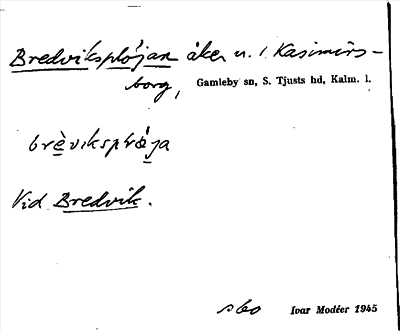 Bredviksplöjan åker u. / Kasimirs-
borg, Gamleby sn, S. Tjusts hd, Kalm. l.
Vid Bredvik.
Ivar Modéer 1945